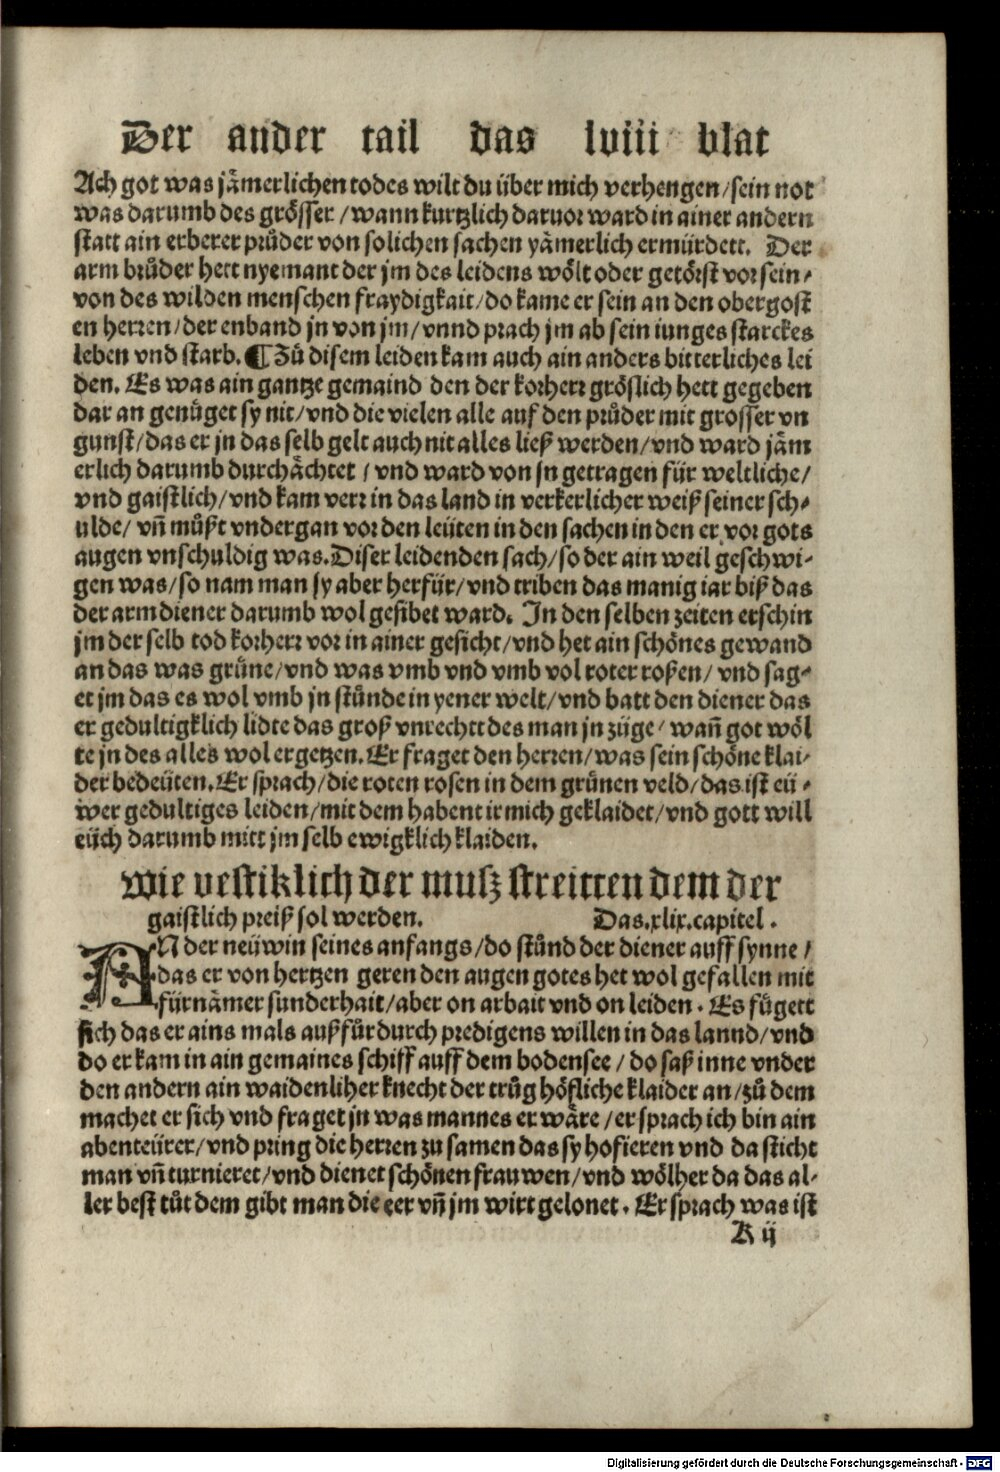 Der ander tail das lviii blat
Ach got was jämerlichen todes wilt du über mich verhengen/sein not
was darumb des grösser/wann kurtzlich daruor ward in ainer andern
statt ain erberer průder von solichen sachen yämerlich ermürdett. Der
arm brůder hett nyemant der jm des leidens wölt oder getörst vor sein/
von des wilden menschen fraydigkait/do kame er sein an den obergost
en herren/der enband jn von jm/vnnd prach jm ab sein iunges starckes
leben vnd starb. ¶ Zů disem leiden kam auch ain anders bitterliches lei
den. Es was ain gantze gemaind den der korherr gröslich hett gegeben
dar an genüget sy nit/vnd die vielen alle auf den průder mit grosser vn
gunst/das er jn das selb gelt auch nit alles ließ werden/vnd ward jäm
erlich darumb durchächtet/vnd ward von jn getragen für weltliche/
vnd gaistlich/vnd kam verr in das land in verkerlicher weiß seiner sch/
ulde/vñ můßt vndergan vor den leüten in den sachen in den er vor gots
augen vnschuldig was. Diser leidenden sach/so der ain weil geschwi/
gen was/so nam man sy aber herfür/vnd triben das manig iar biß das
der arm diener darumb wol gesibet ward. In den selben zeiten erschin
jm der selb tod korherr vor in ainer gesicht/vnd het ain schönes gewand
an das was grüne/vnd was vmb vnd vmb vol roter roßen/vnd sag/
et jm das es wol vmb jn stůnde in yener welt/vnd batt den diener das
er gedultigklich lidte das groß vnrechtt des man jn züge/wañ got wöl
te jn des alles wol ergetzen. Er fraget den herren/was sein schöne klai/
der bedeüten. Er sprach/die roten rosen in dem grünen veld/das ist eü/
wer gedultiges leiden/mit dem habent ir mich geklaidet/vnd gott will
eüch darumb mitt jm selb ewigklich klaiden.
wie vestiklich der musz streitten dem der
gaistlich preiß sol werden. Das.xlix.capitel.
AN der neüwin seines anfangs/do stůnd der diener auff synne/
das er von hertzen geren den augen gotes het wol gefallen mit
fürnämer sunderhait/aber on arbait vnd on leiden. Es fůgett
sich das er ains mals außfůr durch predigens willen in das lannd/vnd
do er kam in ain gemaines schiff auff dem bodensee/do saß inne vnder
den andern ain waidenliher knecht der trůg höfliche klaider an/zů dem
machet er sich vnd fraget jn was mannes er wäre/er sprach ich bin ain
abenteürer/vnd pring die herren zu samen das sy hofieren vnd da sticht
man vñ turnieret/vnd dienet schönen frauwen/vnd wölher da das al/
ler best tůt dem gibt man die eer vñ jm wirt gelonet. Er sprach was ist
K ij
Digitalisierung gefördert durch die Deutsche Forschungsgemeinschaft - DFG